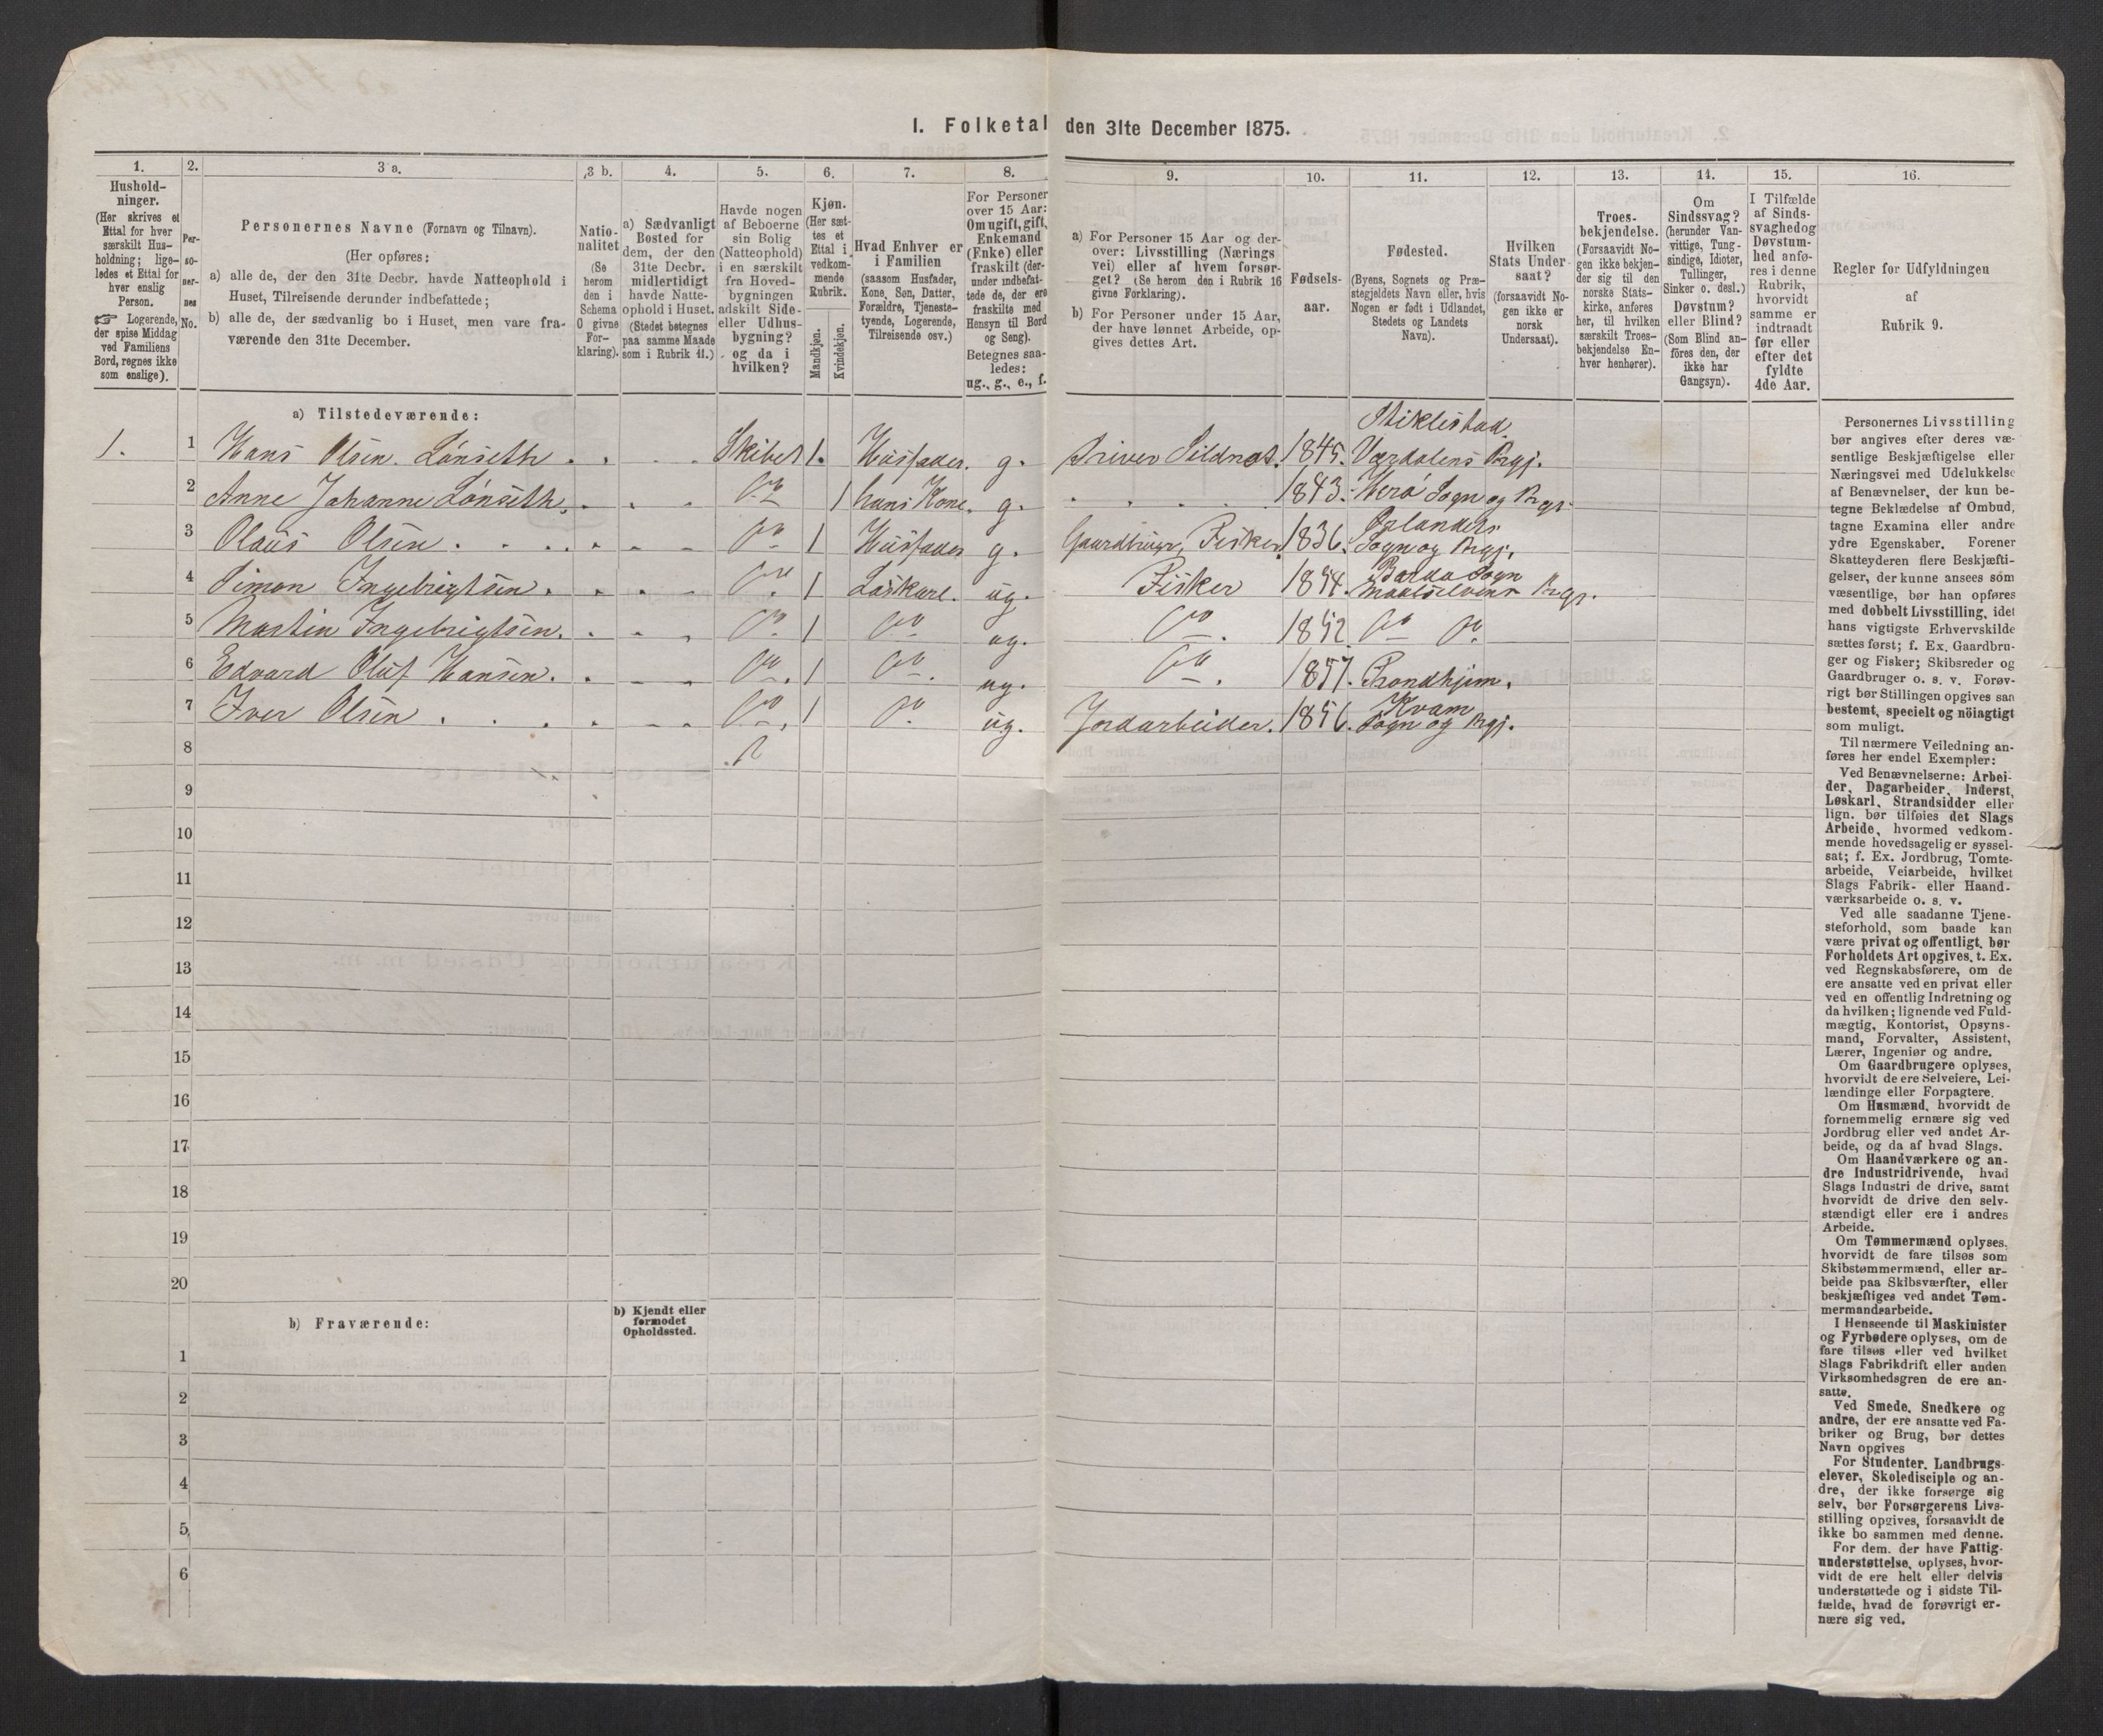 I. Folketal den 31te December 1875.
1.
Hushold-
ninger.
(Her skrives et
Ettal for hver
særskilt Hus-
holdning; lige-
ledes et Ettal for
hver enslig
Person.
☞ Logerende,
der spise Middag
ved Familiens
Bord, regnes ikke
som enslige).
2.
Per-
so-
ner-
nes
No.
3 a.
Personernes Navne (Fornavn og Tilnavn).
(Her opføres:
a) alle de, der den 31te Decbr. havde Natteophold i
Huset, Tilreisende derunder indbefattede;
b) alle de, der sædvanlig bo i Huset, men vare fra-
værende den 31te December.
3 b.
Natio-
nalitet
(Se
herom
den i
Schema
O givne
For-
klaring).
4.
a) Sædvanligt
Bosted for
dem, der den
31te Decbr.
midlertidigt
havde Natte-
ophold i Huset.
(Stedet betegnes
paa samme Maade
som i Rubrik 11.)
5.
Havde nogen
af Beboerne
sin Bolig
(Natteophold)
i en særskilt
fra Hoved-
bygningen
adskilt Side-
eller Udhus-
bygning?
og da i
hvilken?
6.
Kjøn.
(Her sæt-
tes et
Ettal i
vedkom-
mende
Rubrik.
Mandkjøn.
Kvindekjøn.
7.
Hvad Enhver er
i Familien
(saasom Husfader,
Kone, Søn, Datter,
Forældre, Tjeneste-
tyende, Logerende,
Tilreisende osv.)
8.
For Personer
over 15 Aar:
Om ugift, gift,
Enkemand
(Enke) eller
fraskilt (der-
under indbefat-
tede de, der ere
fraskilte med
Hensyn til Bord
og Seng).
Betegnes saa-
ledes:
ug., g., e., f.
9.
a) For Personer 15 Aar og der-
over: Livsstilling (Nærings
vei) eller af hvem forsør-
get? (Se herom den i Rubrik 16
givne Forklaring).
b) For Personer under 15 Aar,
der have lønnet Arbeide, op-
gives dettes Art.
10.
Fødsels-
aar.
11.
Fødested.
(Byens, Sognets og Præ-
stegjeldets Navn eller, hvis
Nogen er født i Udlandet,
Stedets og Landets
Navn).
12.
Hvilken
Stats Under
saat?
(forsaavidt No-
gen ikke er
norsk
Undersaat).
13.
Troes-
bekjendelse.
(Forsaavidt No-
gen ikke bekjen-
der sig til den
norske Stats-
kirke, anføres
her, til hvilken
særskilt Troes-
bekjendelse En-
hver henhører).
14.
Om
Sindssvag?
(herunder Van-
vittige, Tung-
sindige, Idioter,
Tullinger,
Sinker o. desl.)
Døvstum?
eller Blind?
(Som Blind an-
föres den, der
ikke har
Gangsyn).
15.
I Tilfælde
af Sinds-
svaghedog
Døvstum-
hed anfø-
res i denne
Rubrik,
hvorvidt
samme er
indtraadt
før eller
efter det
fyldte
4de Aar.
16.
Regler for Udfyldningen
af
Rubrik 9.
a) Tilstedeværende:
1. 1 Hans Olsen Lønseth Skibet 1. Husfader. g. Driver Sildnot. 1845. Stiklestad Værdalens Prgj.
2 Anne Johanne Lønseth. Do 1 hans Kone. g. 1843. Herø Sogn og Prgj.
3 Olaus Olsen Do 1 Husfader g. Gaardbruger, Fisker 1836. Ørlandets Sogn og Prgj.
4 Simon Ingebrigtsen. Do 1 Løskarl. ug. Fisker 1854. Bardo Sogn Maalselvens Prgj.
5 Martin Ingebrigtsen. Do 1 Do ug. Do. 1852 Do Do
6 Edvard Oluf Hansen. Do. 1 Do. ug. Do. 1857. Trondhjem.
7 Iver Olsen Do. 1 Do ug. Jordarbeider. 1856. Kvam Sogn og Prgj.
8
9
10
11
12
13
14
15
16
17
18
19
20
b) Fraværende:
b) Kjendt eller
formodet
Opholdssted.
1
2
3
4
5
6
Personernes Livsstilling
bør angives efter deres væ-
sentlige Beskjæftigelse eller
Næringsvei med Udelukkelse
af Benævnelser, der kun be-
tegne Beklædelse af Ombud,
tagne Examina eller andre
ydre Egenskaber. Forener
Skatteyderen flere Beskjæfti-
gelser, der kunne ansees som
væsentlige, bør han opføres
med dobbelt Livsstilling, idet
hans vigtigste Erhvervskilde
sættes først; f. Ex. Gaardbru-
ger og Fisker; Skibsreder og
Gaardbruger o. s. v. Forøv-
rigt bør Stillingen opgives saa
bestemt, specielt og nöiagtigt
som muligt.
Til nærmere Veiledning an-
føres her endel Exempler:
Ved Benævnelserne: Arbei-
der, Dagarbeider, Inderst,
Løskarl, Strandsidder eller
lign. bør tilføies det Slags
Arbeide, hvormed vedkom-
mende hovedsagelig er syssel-
sat; f. Ex. Jordbrug, Tomte-
arbeide, Veiarbeide, hvilket
Slags Fabrik- eller Haand-
værksarbeide o. s. v.
Ved alle saadanne Tjene-
steforhold, som baade kan
være privat og offentligt, bør
Forholdets Art opgives, t. Ex.
ved Regnskabsførere, om de
ere ansatte ved en privat eller
ved en offentlig Indretning og
da hvilken; lignende ved Fuld-
mægtig, Kontorist, Opsyns-
mand, Forvalter, Assistent,
Lærer, Ingeniør og andre.
Om Gaardbrugere oplyses,
hvorvidt de ere Selveiere, Lei-
lændinge eller Forpagtere.
Om Husmænd, hvorvidt de
fornemmelig ernære sig ved
Jordbrug eller ved andet Ar-
beide, og da af hvad Slags.
Om Haandværkere og an-
dre Industridrivende, hvad
Slags Industri de drive, samt
hvorvidt de drive den selv-
stændigt eller ere i andres
Arbeide.
Om Tømmermænd oplyses,
hvorvidt de fare tilsøs som
Skibstømmermænd, eller ar-
beide paa Skibsværfter, eller
beskjæftiges ved andet Tøm-
mermandsarbeide.
I Henseende til Maskinister
og Fyrbødere oplyses, om de
fare tilsøs eller ved hvilket
Slags Fabrikdrift eller anden
Virksomhedsgren de ere an-
satte.
Ved Smede, Snedkere og
andre, der ere ansatte ved Fa-
briker og Brug, bør dettes
Navn opgives
For Studenter, Landbrugs-
elever, Skoledisciple og an-
dre, der ikke forsørge sig
selv, bør Forsørgerens Livs-
stilling opgives, forsaavidt de
ikke bo sammen med denne.
For dem, der have Fattig-
understøttelse, oplyses, hvor-
vidt de ere helt eller delvis
understøttede og i sidste Til-
fælde, hvad de forøvrigt er-
nære sig ved.